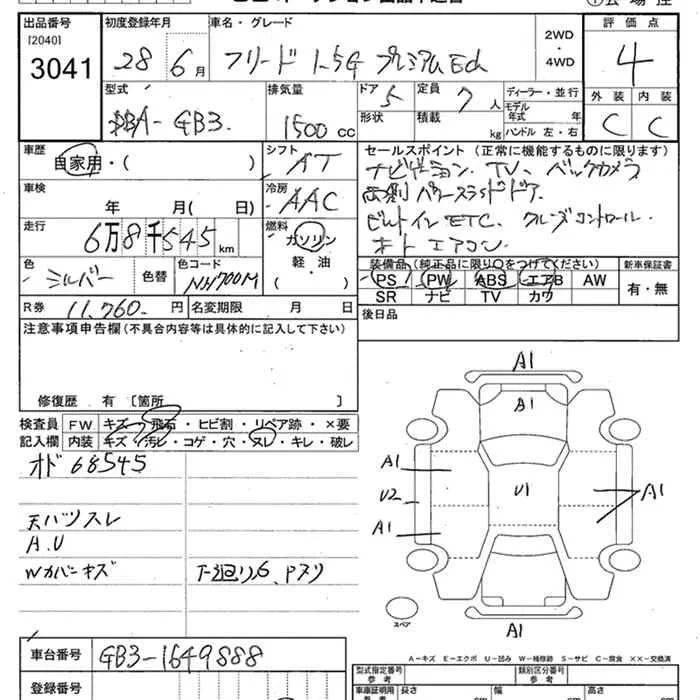 出品番号
[2040]
3041
初度登録年月
28 6月
車名・グレード
フリード 1.5G プレミアムEd
2WD
・
4WD
評価点
4
外装 内装
C C
型式
DBA-GB3
排気量
1500 cc
ドア 5
形状
定員 7人
積載 kg
ディーラー・並行
モデル年式 年式
ハンドル 左・右
車歴
自家用・( )
シフト
AT
車検
年 月( 日)
冷房
AAC
走行
6万8千545km
燃料
ガソリン
軽・油
( )
色
シルバー
色替
色コード
NH700M
R券 11,760円
名変期限 月 日
セールスポイント (正常に機能するものに限ります)
ナビゲーション、TV、バックカメラ
両側パワースライドドア、
ビルトインETC、クルーズコントロール、
オートエアコン
装備品(純正品に限り○をつけてください)
新車保証書
PS PW ABS エアB AW
SR ナビ TV カワ
有・無
後日品
注意事項申告欄(不具合内容等は具体的に記入して下さい)
修復歴 有 [箇所 ]
検査員
記入欄
FW キズ・飛石・ヒビ割・リペア跡・×要
内装 キズ・汚レ・コゲ・穴・ヌレ・キレ・破レ
オド 68545
天バリスレ
A.U
Wカバーキズ
下廻りS、Pスリ
A1
A1
A1
U2
A1
U1
A1
A1
スペア
A-キズ E-エクボ U-凹み W-補修跡 S-サビ C-腐食 ××-交換済
車台番号 GB3-1649888
登録番号
型式指定番号
参考
類別区分番号
参考
車庫証明用
参考
長さ cm
幅 cm
高さ cm